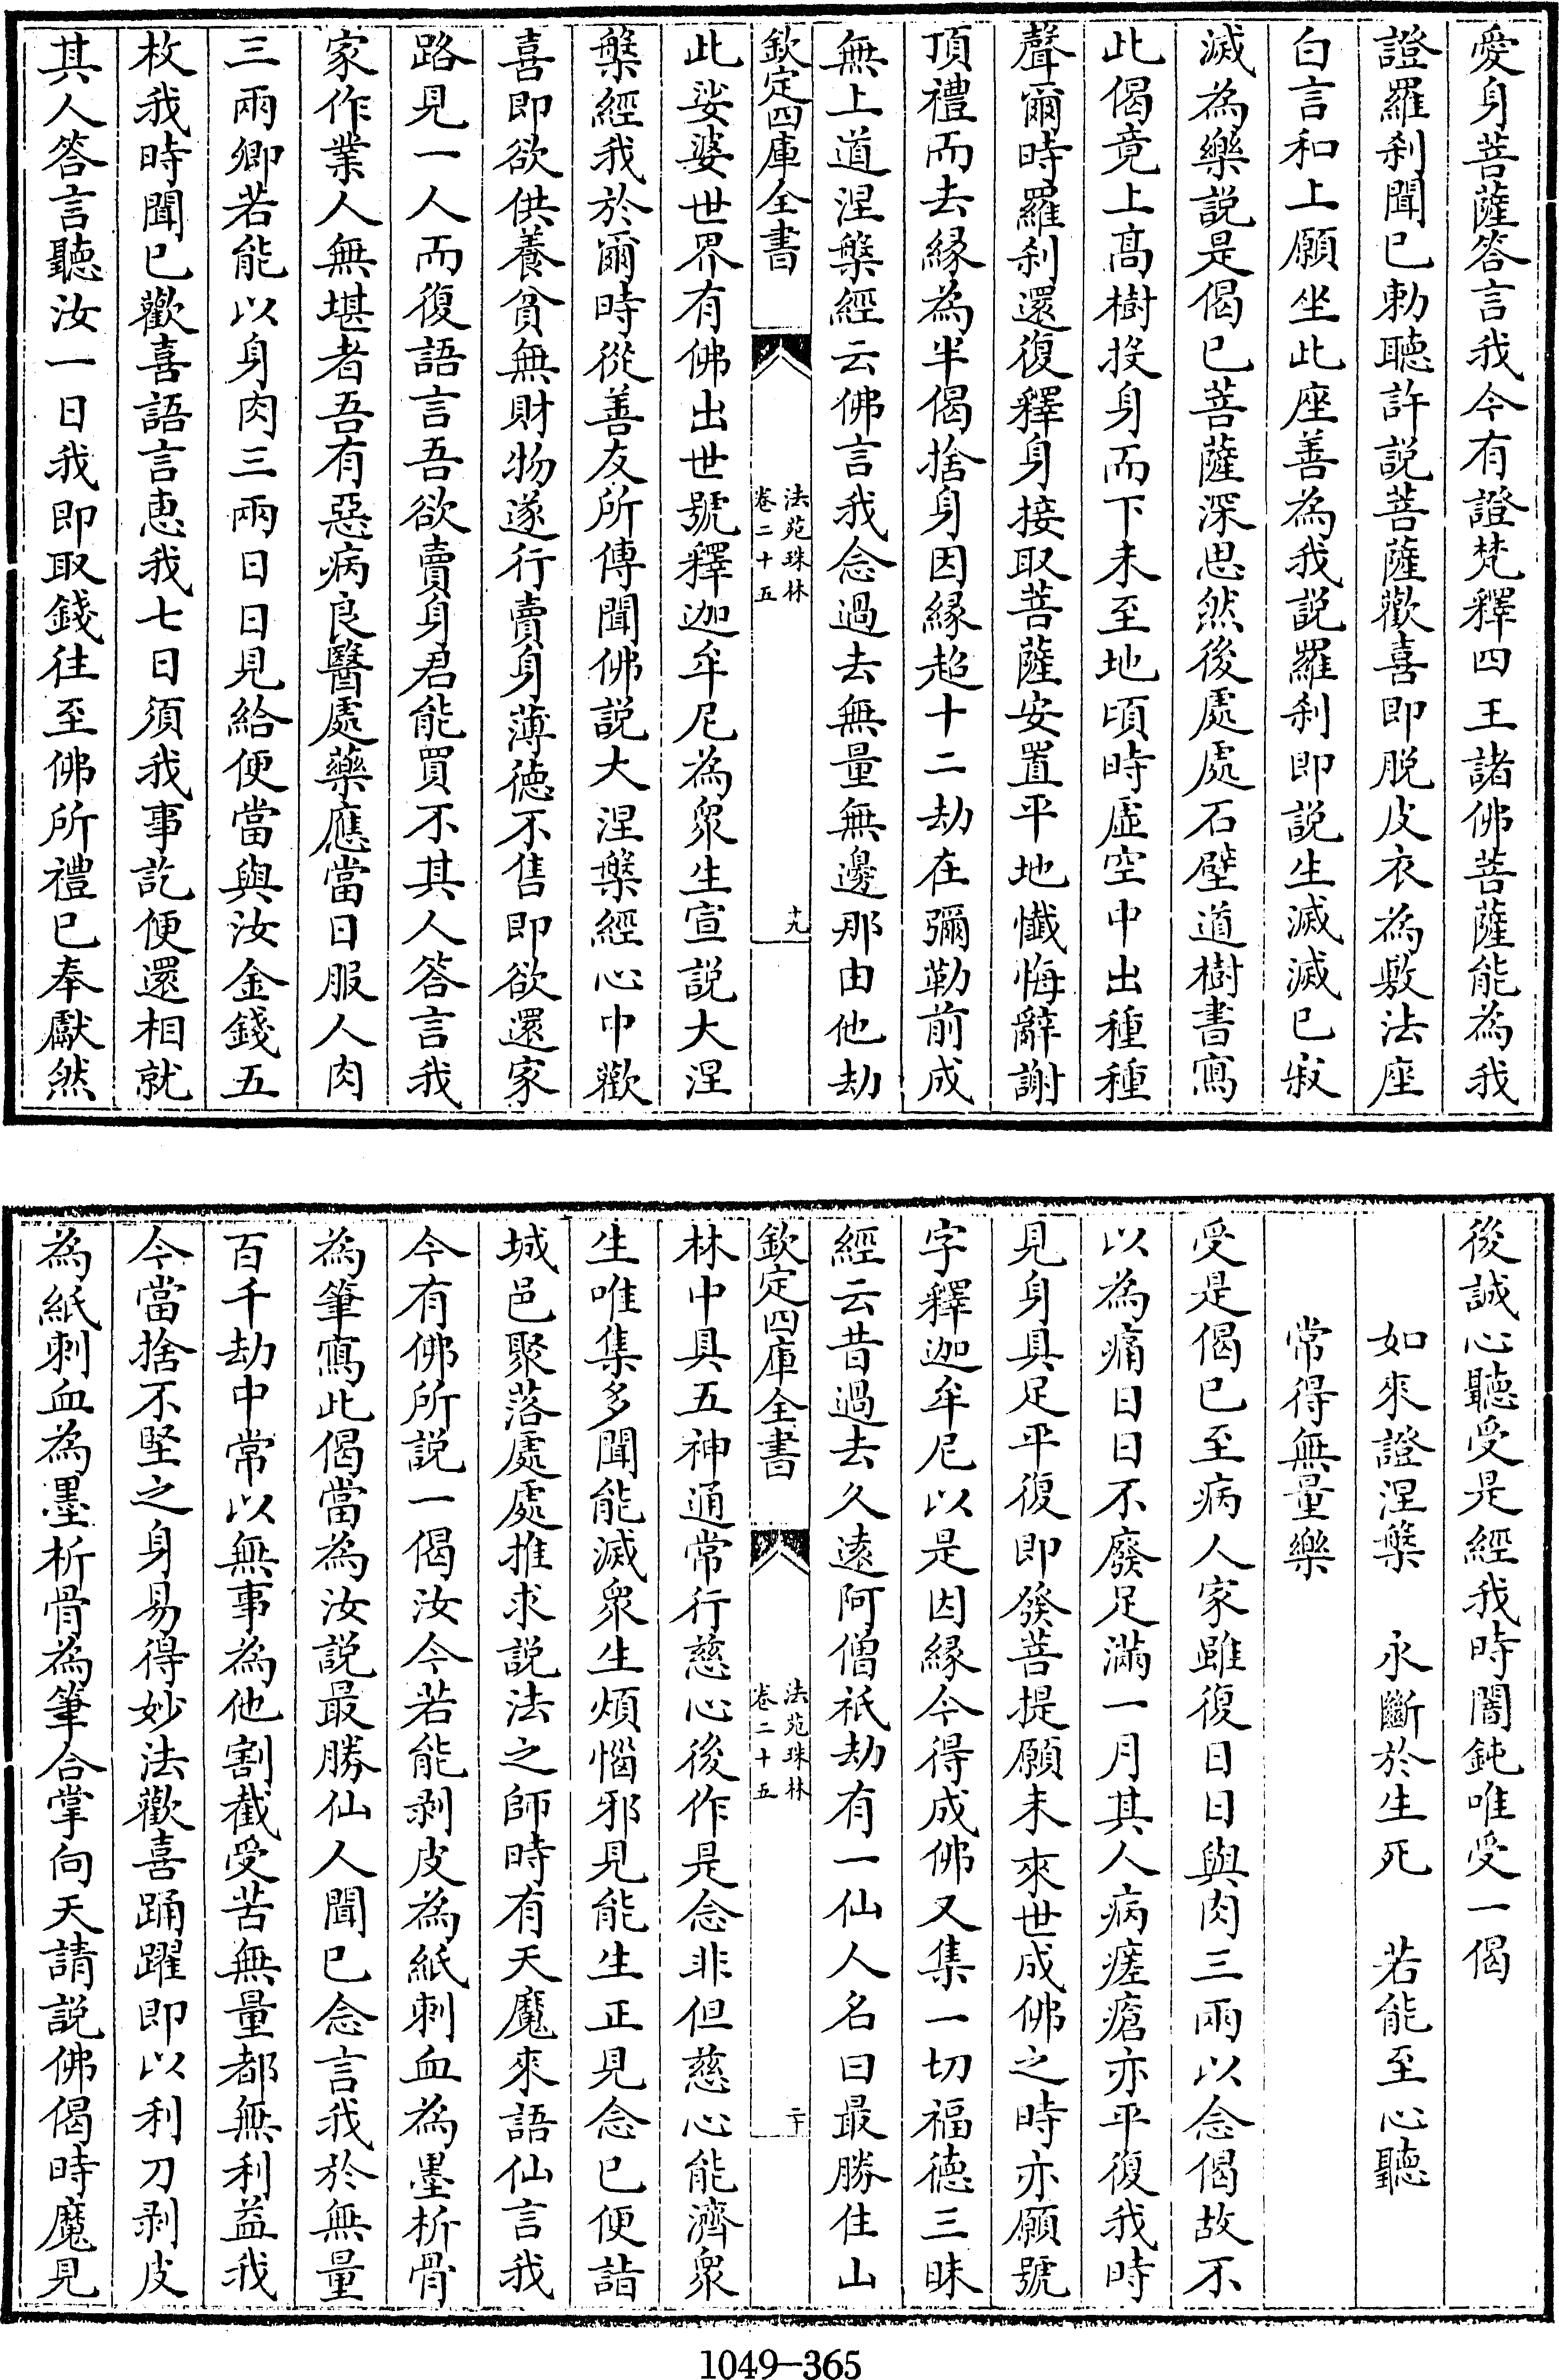 愛身菩薩答言我今有證梵釋四王諸佛菩薩能為我
證羅刹聞已勅聽許説菩薩歡喜即脱皮衣為敷法座
白言和上願坐此座善為我説羅刹即説生滅滅已寂
滅為樂説是偈已菩薩深思然後處處石壁道樹書寫
此偈竟上高樹投身而下未至地頃時虛空中出種種
聲爾時羅刹還復釋身接取菩薩安置平地懺悔辭謝
頂禮而去縁為半偈捨身因縁超十二劫在彌勒前成
無上道涅槃經云佛言我念過去無量無邊那由他劫
欽定四庫全書
法苑珠林
卷二十五
十九
此娑婆世界有佛出世號釋迦牟尼為衆生宣説大涅
槃經我於爾時從善友所傳聞佛説大涅槃經心中歡
喜即欲供養貧無財物遂行賣身薄徳不售即欲還家
路見一人而復語言吾欲賣身君能買不其人答言我
家作業人無堪者吾有惡病良醫處藥應當日服人肉
三兩卿若能以身肉三兩日日見給便當與汝金錢五
枚我時聞已歡喜語言惠我七日須我事訖便還相就
其人答言聽汝一日我即取錢往至佛所禮已奉獻然
後誠心聽受是經我時闇鈍唯受一偈
如來證涅槃　永斷於生死　若能至心聽
常得無量樂
受是偈已至病人家雖復日日與肉三兩以念偈故不
以為痛日日不廢足滿一月其人病瘥瘡亦平復我時
見身具足平復即發菩提願未來世成佛之時亦願號
字釋迦牟尼以是因縁今得成佛又集一切福徳三昧
經云昔過去久遠阿僧祇劫有一仙人名曰最勝住山
欽定四庫全書
法苑珠林
卷二十五
二十
林中具五神通常行慈心後作是念非但慈心能濟衆
生唯集多聞能滅衆生煩惱邪見能生正見念已便詣
城邑聚落處處推求説法之師時有天魔來語仙言我
今有佛所説一偈汝今若能剥皮為紙刺血為墨析骨
為筆寫此偈當為汝説最勝仙人聞已念言我於無量
百千劫中常以無事為他割截受苦無量都無利益我
今當捨不堅之身易得妙法歡喜踊躍即以利刀剥皮
為紙刺血為墨析骨為筆合掌向天請説佛偈時魔見
1049-365